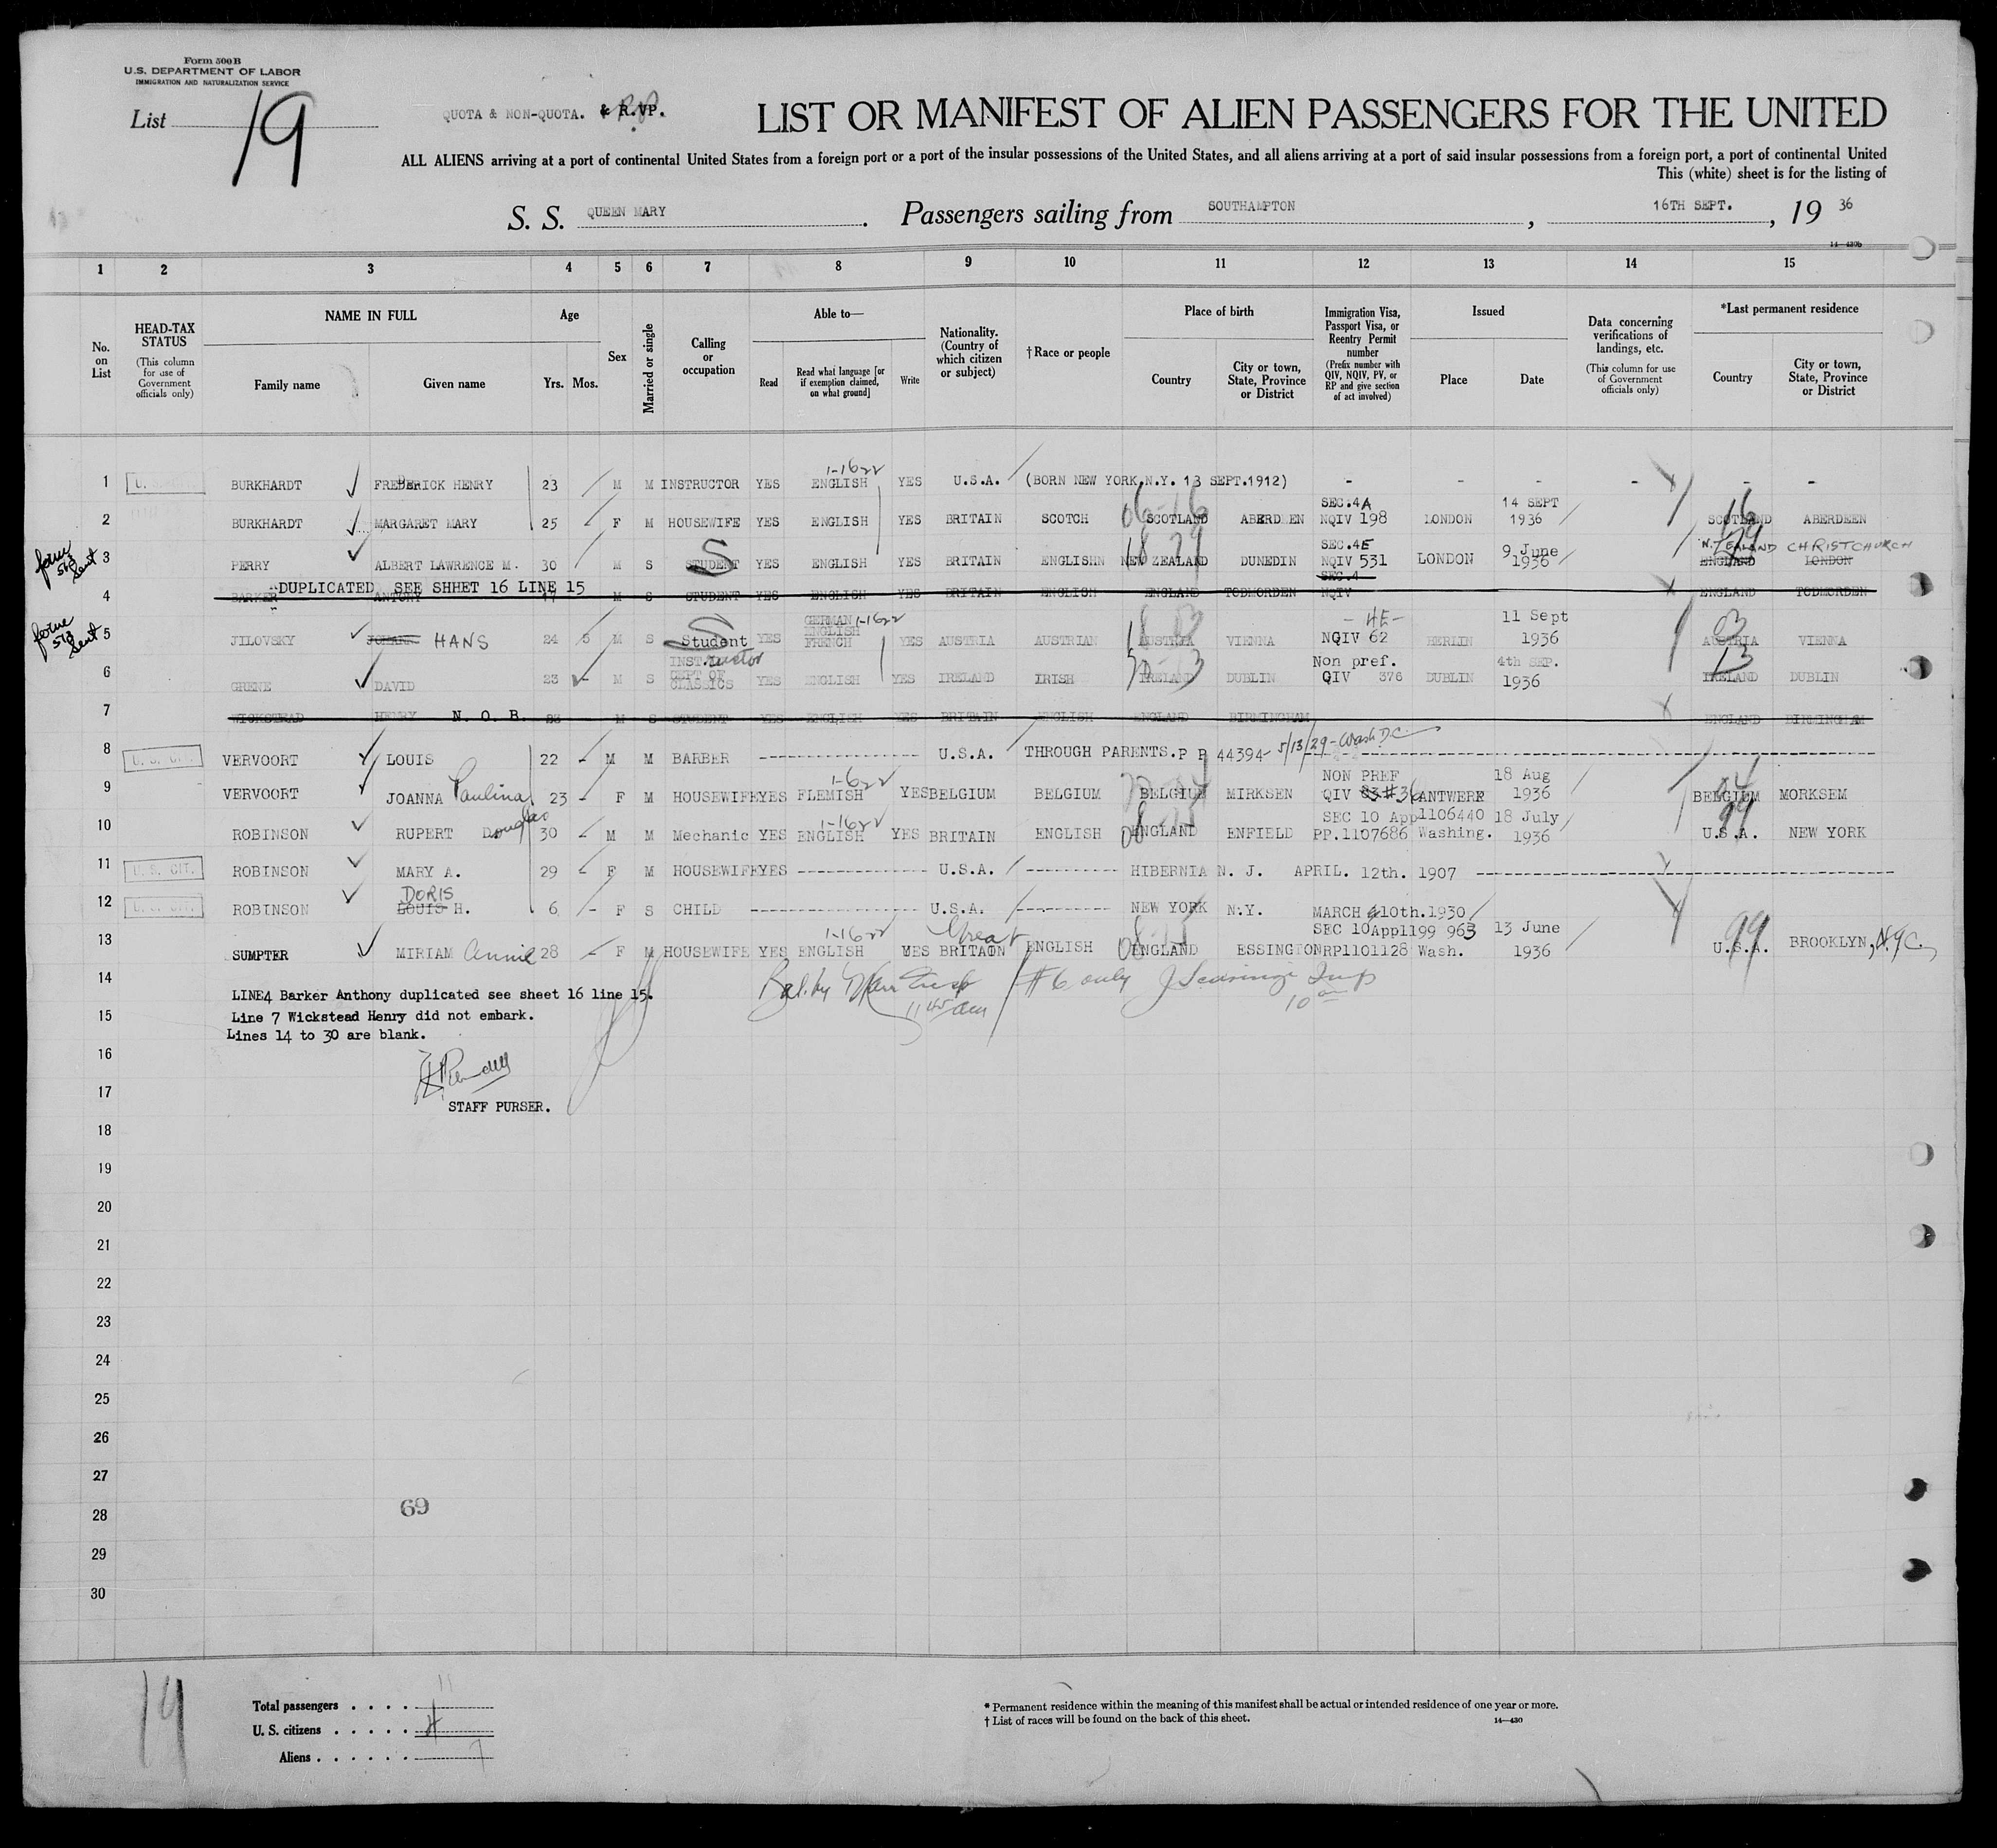 Form 500 B
U.S. DEPARTMENT OF LABOR
IMMIGRATION AND NATURALIZATION SERVICE
List 19
QUOTA & NON-QUOTA. & R.VP.
LIST OR MANIFEST OF ALIEN PASSENGERS FOR THE UNITED
ALL ALIENS arriving at a port of continental United States from a foreign port or a port of the insular possessions of the United States, and all aliens arriving at a port of said insular possessions from a foreign port, a port of continental United
This (white) sheet is for the listing of
S. S. QUEEN MARY. Passengers sailing from SOUTHAMPTON, 16TH SEPT., 19 36
14—430b
1 2 3 4 5 6 7 8 9 10 11 12 13 14 15
No. on List
HEAD-TAX STATUS (This column for use of Government officials only)
NAME IN FULL
Family name Given name
Age
Yrs. Mos.
Sex
Married or single
Calling or occupation
Able to—
Read Read what language [or if exemption claimed, on what ground] Write
Nationality. (Country of which citizen or subject)
†Race or people
Place of birth
Country City or town, State, Province or District
Immigration Visa, Passport Visa, or Reentry Permit number (Prefix number with QIV, NQIV, PV, or RP and give section of act involved)
Issued
Place Date
Data concerning verifications of landings, etc. (This column for use of Government officials only)
*Last permanent residence
Country City or town, State, Province or District
1-1622
1 BURKHARDT FREDERICK HENRY 23 M M INSTRUCTOR YES ENGLISH YES U.S.A. (BORN NEW YORK,N.Y. 13 SEPT.1912) - - - - - -
SEC.4A 14 SEPT
2 BURKHARDT MARGARET MARY 25 F M HOUSEWIFE YES ENGLISH YES BRITAIN SCOTCH 06-16 SCOTLAND ABERDEEN NQIV 198 LONDON 1936 16 SCOTLAND ABERDEEN
form 568 sent
SEC.4E 9 June N.ZEALAND CHRISTCHURCH
3 PERRY ALBERT LAWRENCE M. 30 M S STUDENT S YES ENGLISH YES BRITAIN ENGLISHN 18 29 NEW ZEALAND DUNEDIN NQIV 531 LONDON 1936 29 ENGLAND LONDON
DUPLICATED SEE SHHET 16 LINE 15 SEC.4
4 BARKER ANTONY 17 M S STUDENT YES ENGLISH YES BRITAIN ENGLISH ENGLAND TODMORDEN NQIV ENGLAND TODMORDEN
form 568 sent
GERMAN 1-1622 - 4E - 11 Sept
ENGLISH
5 JILOVSKY JOHANN HANS 24 5 M S Student S YES FRENCH YES AUSTRIA AUSTRIAN AUSTRIA VIENNA NQIV 62 BERLIN 1936 03 AUSTRIA VIENNA
INST.ructor Non pref. 4th SEP.
DEPT OF
6 GRENE DAVID 23 M S CLASSICS YES ENGLISH YES IRELAND IRISH IRELAND DUBLIN QIV 376 DUBLIN 1936 13 IRELAND DUBLIN
7 WICKSTEAD HENRY N. O. B. 23 M S STUDENT YES ENGLISH YES BRITAIN ENGLISH ENGLAND BIRMINGHAM ENGLAND BIRMINGHAM
8 U. S. CIT. VERVOORT LOUIS 22 M M BARBER U.S.A. THROUGH PARENTS.P P 44394- 5/13/29 - Wash D.C.
1-622 NON PREF 18 Aug
9 VERVOORT JOANNA Paulina 23 F M HOUSEWIFE YES FLEMISH YES BELGIUM BELGIUM BELGIUM MIRKSEN QIV 83 #36 ANTWERP 1936 04 BELGIUM MORKSEM
1-1622 SEC 10 App1106440 18 July
10 ROBINSON RUPERT Douglas 30 M M Mechanic YES ENGLISH YES BRITAIN ENGLISH 08 ENGLAND ENFIELD PP.1107686 Washing. 1936 99 U.S.A. NEW YORK
11 U. S. CIT. ROBINSON MARY A. 29 F M HOUSEWIFE YES U.S.A. HIBERNIA N. J. APRIL. 12th. 1907
DORIS
12 U. S. CIT. ROBINSON LOUIS H. 6 F S CHILD U.S.A. NEW YORK N.Y. MARCH 10th.1930
1-1622 Great SEC 10 App1199 963 13 June
13 SUMPTER MIRIAM Annie 28 F M HOUSEWIFE YES ENGLISH YES BRITAON ENGLISH 08 ENGLAND ESSINGTON RP1101128 Wash. 1936 99 U.S.A. BROOKLYN, N.Y.C.
14
LINE4 Barker Anthony duplicated see sheet 16 line 15.
#6 only
15
Line 7 Wickstead Henry did not embark.
1145 am
10 am
Lines 14 to 30 are blank.
16
17
STAFF PURSER.
18
19
20
21
22
23
24
25
26
27
28
69
29
30
19
Total passengers . . . . 11
U. S. citizens . . . . . 4
Aliens . . . . . . 7
* Permanent residence within the meaning of this manifest shall be actual or intended residence of one year or more.
† List of races will be found on the back of this sheet.
14—430